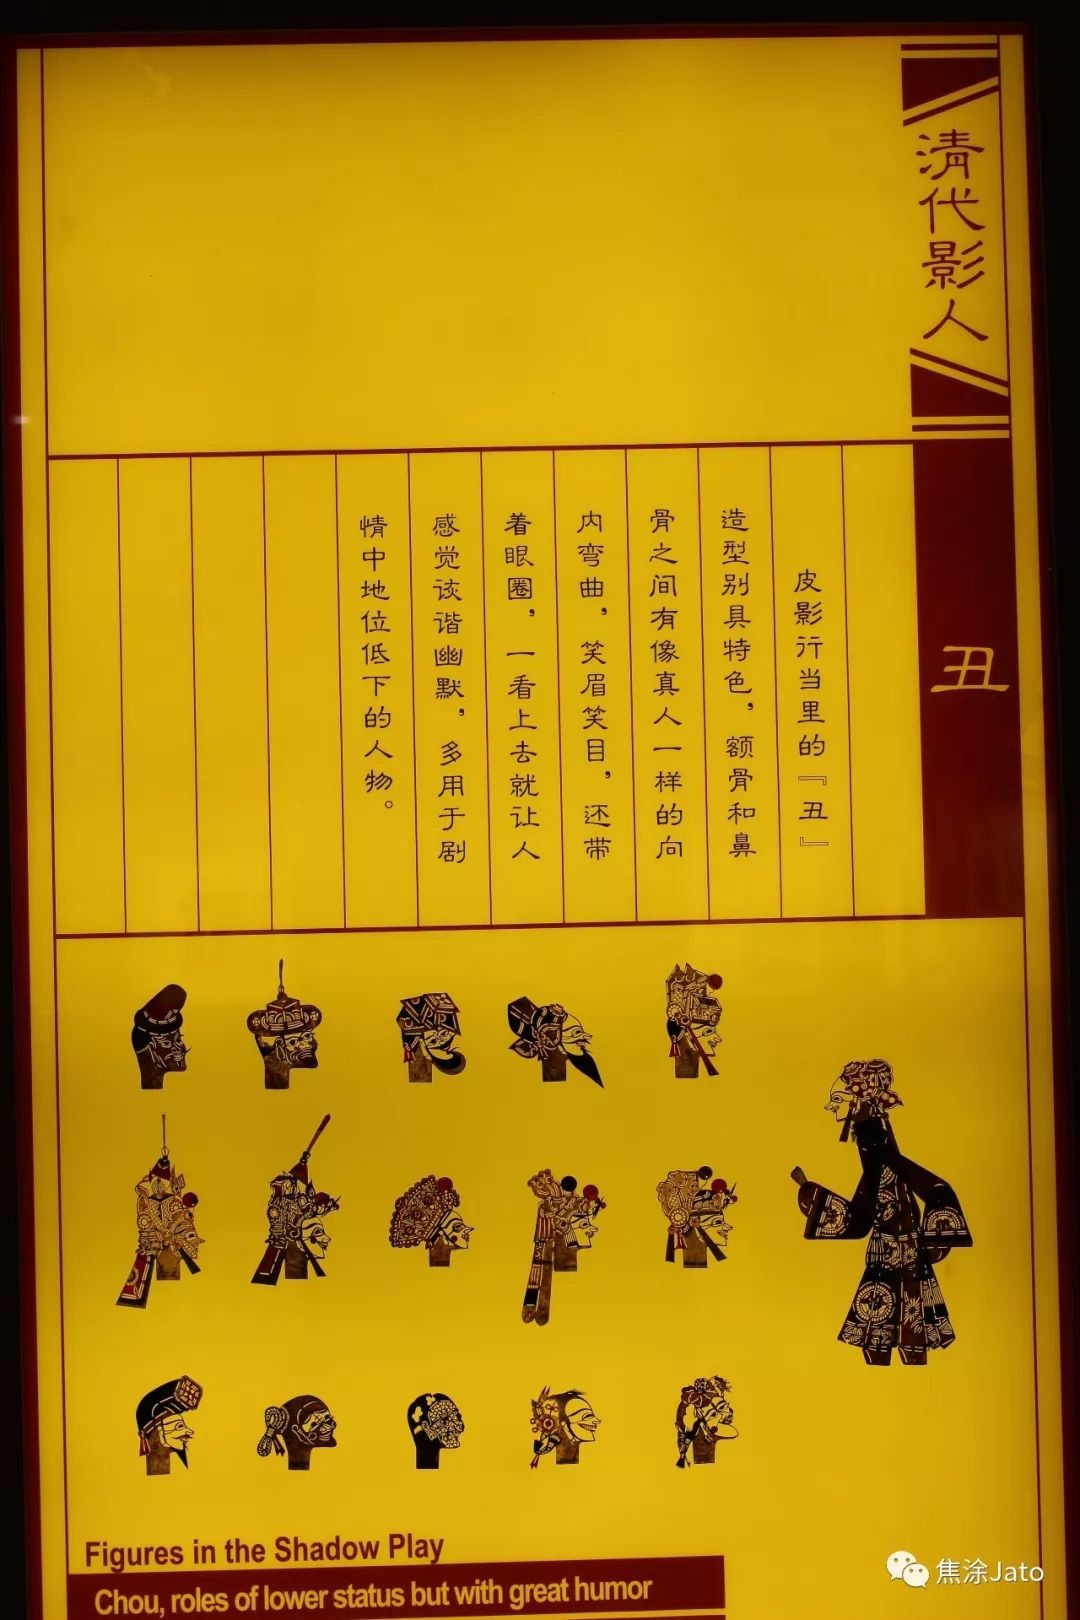 清代影人
丑
皮影行当里的『丑』
造型别具特色，额骨和鼻
骨之间有像真人一样的向
内弯曲，笑眉笑目，还带
着眼圈，一看上去就让人
感觉诙谐幽默，多用于剧
情中地位低下的人物。
Figures in the Shadow Play
Chou, roles of lower status but with great humor
焦涂Jato